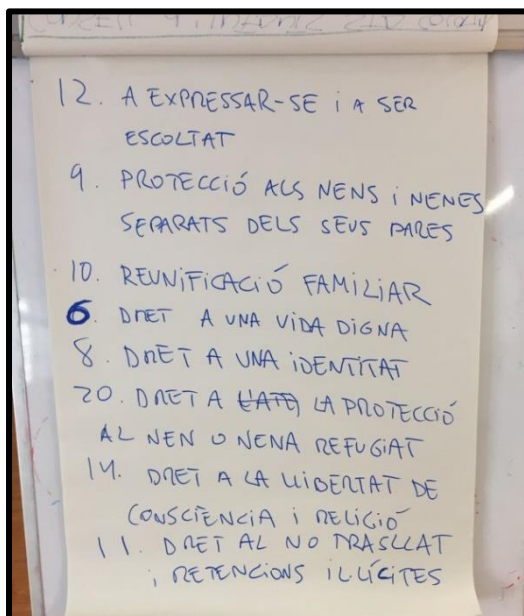 12. A EXPRESSAR-SE i A SER
ESCOLTAT
9. PROTECCIÓ ALS NENS i NENES
SEPARATS DELS SEUS PARES
10. REUNIFICACIÓ FAMILIAR
6. DRET A UNA VIDA DIGNA
8. DRET A UNA IDENTITAT
20. DRET A LA PROTECCIÓ
AL NEN O NENA REFUGIAT
14. DRET A LA LLIBERTAT DE
CONSCIÈNCIA i RELIGIÓ
11. DRET AL NO TRASLLAT
i RETENCIONS IL·LÍCITES